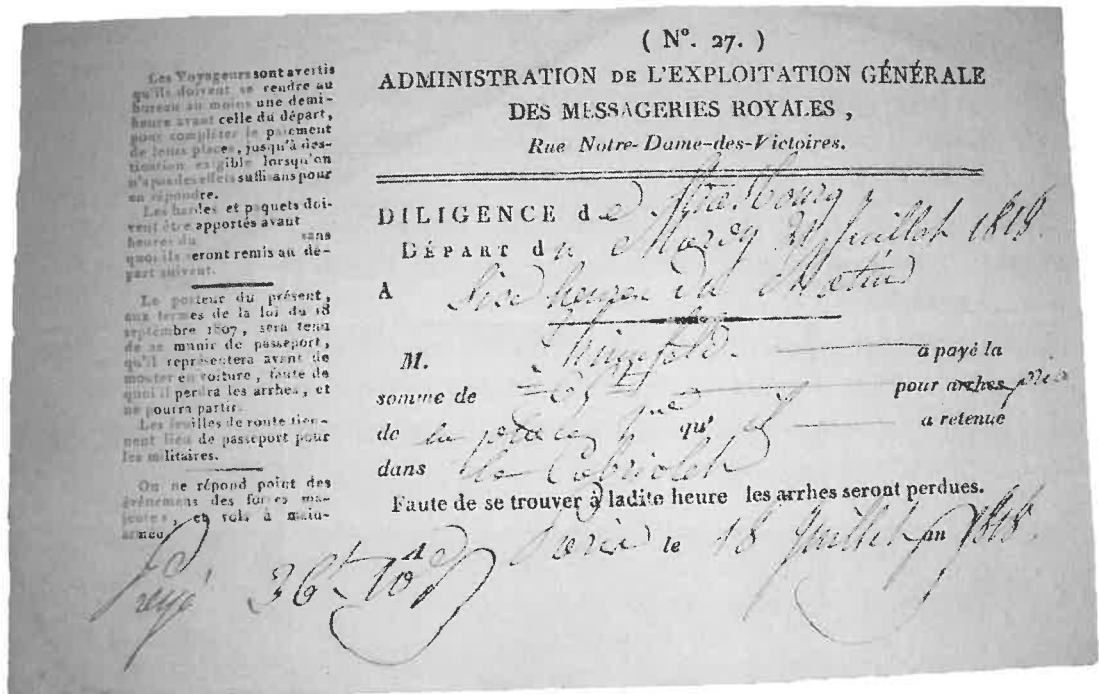 Les Voyageurs sont avertis
qu'ils doivent se rendre au
bureau au moins une demi-
heure avant celle du départ,
pour completer le paiement
de leurs places, jusqu'à des-
tination exigible lorsqu'on
n'a pas des effets suffisans pour
en répondre.
Les hardes et paquets doi-
vent être apportés avant
heures du sans
quoi ils seront remis au dé-
part suivant.
Le porteur du présent,
aux termes de la loi du 18
septembre 1807, sera tenu
de se munir de passeport,
qu'il représentera avant de
monter en voiture, faute de
quoi il perdra les arrhes, et
ne pourra partir.
Les feuilles de route tien-
nent lieu de passeport pour
les militaires.
On ne répond point des
événemens des forces ma-
jeures, et vols à main-
armée
( N°. 27. )
ADMINISTRATION DE L'EXPLOITATION GÉNÉRALE
DES MESSAGERIES ROYALES,
Rue Notre-Dame-des-Victoires.
DILIGENCE de Strasbourg
DÉPART du Juillet 1818.
A Six heures du Matin
M. a payé la
somme de pour arrhes
de la place qu'il a retenue
dans le Cabriolet
Faute de se trouver à ladite heure les arrhes seront perdues.
A Paris le 18 Juillet an 1818.
36